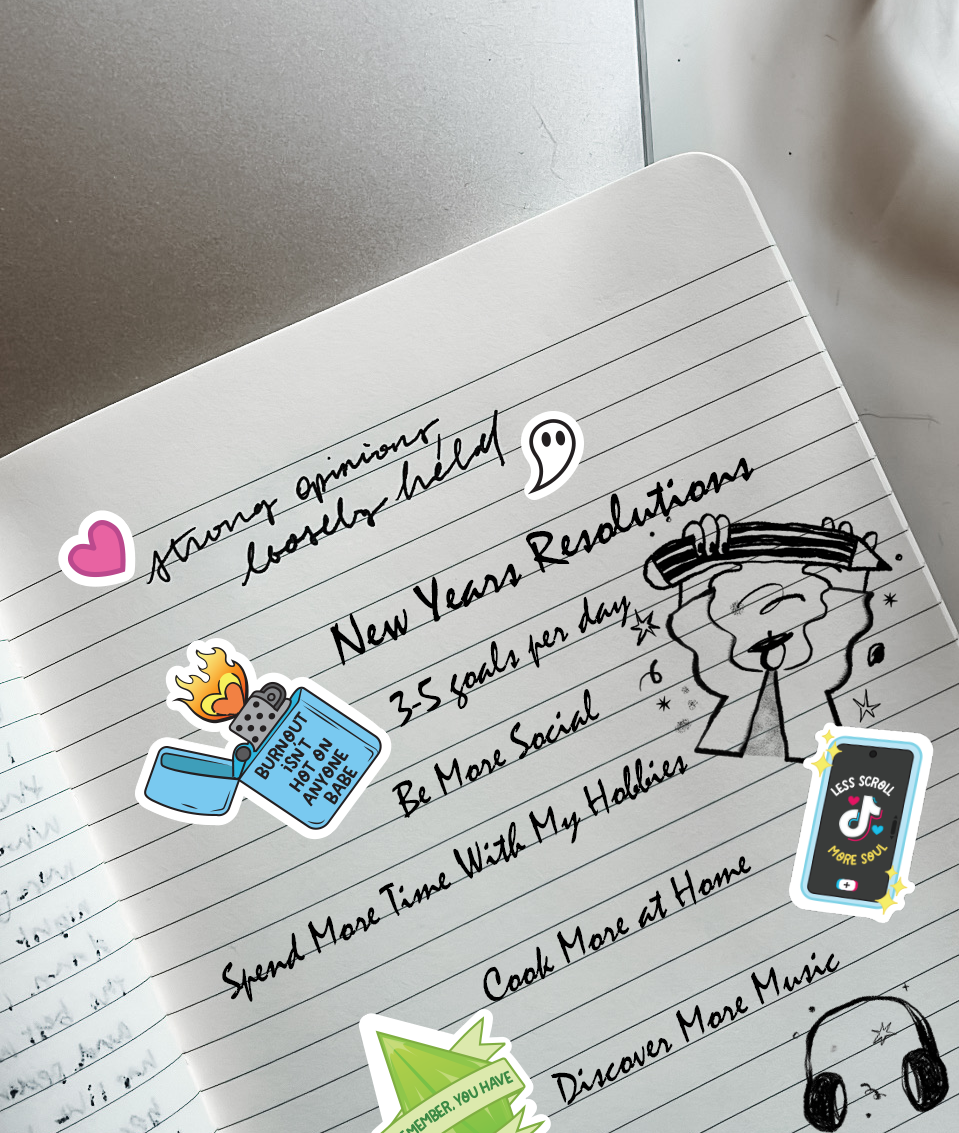 strong opinions,
loosely held
New Years Resolutions
3-5 goals per day
Be More Social
Spend More Time With My Hobbies
Cook More at Home
Discover More Music
BURNOUT
ISN'T
HOT ON
ANYONE
BABE
LESS SCROLL
MORE SOUL
YOU HAVE